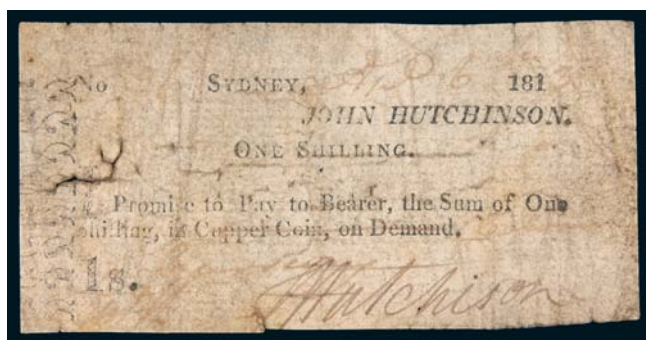 No SYDNEY, 181
JOHN HUTCHINSON.
ONE SHILLING.
Promise to Pay to Bearer, the Sum of One
shilling, in Copper Coin, on Demand.
1s. J Hutchison